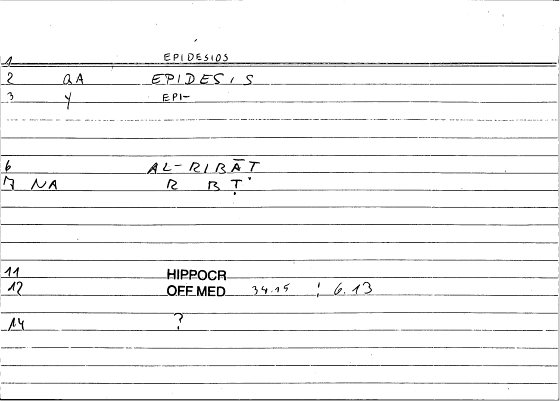 1 EPIDESIOS
2 QA EPIDESIS
3 Y EPI-
6 AL-RIBĀT
7 NA R B Ṭ
11 HIPPOCR
12 OFF MED 34.15 ; 6.13
14 ?